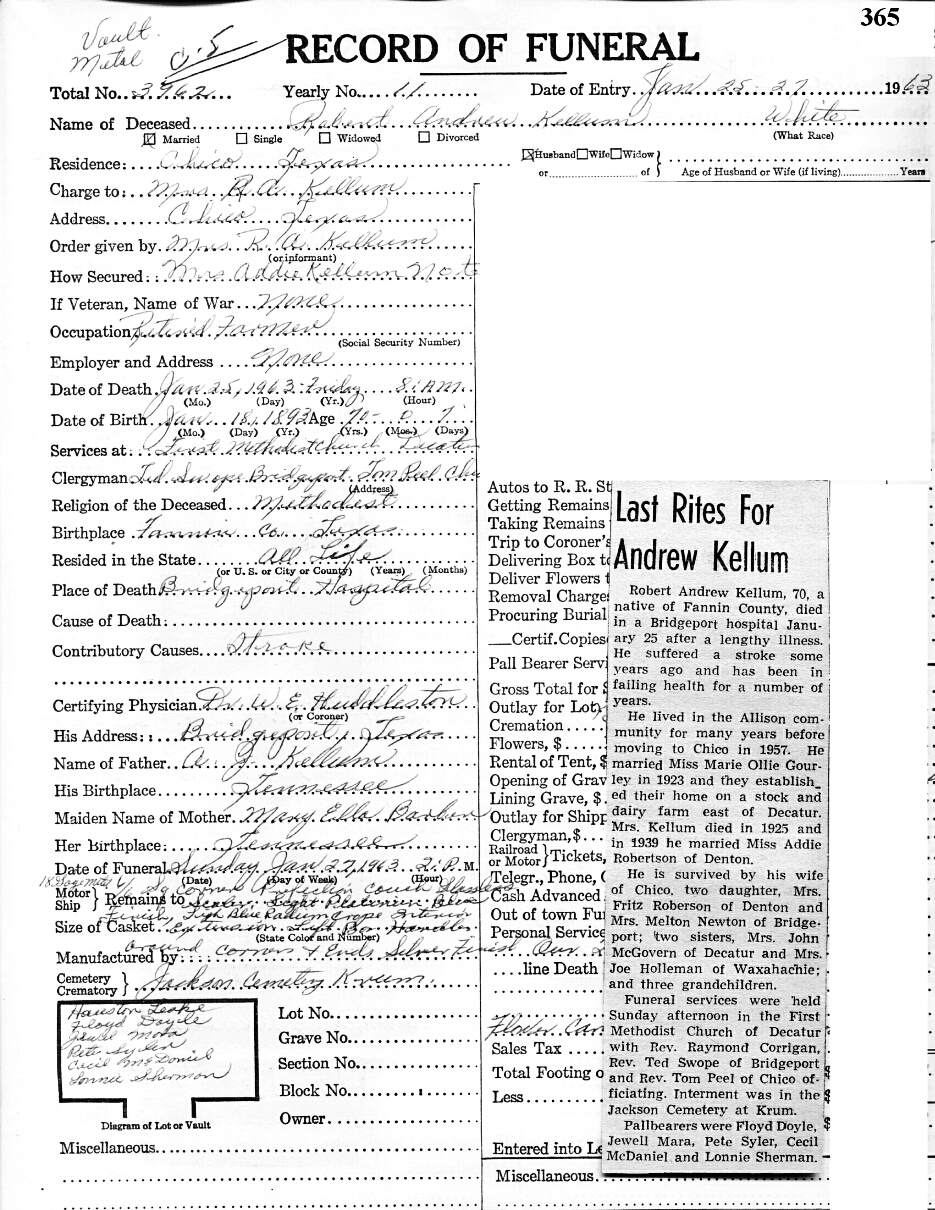 365
Vault
Metal
RECORD OF FUNERAL
Total No. 3962 Yearly No. 11 Date of Entry Jan 25-27 1963
Name of Deceased Robert Andrew Kellum White
Married Single Widowed Divorced (What Race)
Residence: Chico Texas Husband Wife Widow
or of Age of Husband or Wife (if living) Years
Charge to: Mrs. R. A. Kellum
Address Chico Texas
Order given by Mrs. R. A. Kellum
(or informant)
How Secured: Mrs Addie Kellum Note
If Veteran, Name of War None
Occupation Retired Farmer
(Social Security Number)
Employer and Address None
Date of Death Jan 25, 1963 Friday 8: A.M.
(Mo.) (Day) (Yr.) (Hour)
Date of Birth Jan 18, 1893 Age 70 - 0 7
(Mo.) (Day) (Yr.) (Yrs.) (Mos.) (Days)
Services at: First Methodist Church Decatur
Clergyman Ted Swope Bridgeport Tom Peel Chi
(Address)
Religion of the Deceased Methodist
Birthplace Fannin Co. Texas
Resided in the State All Life
(or U. S. or City or County) (Years) (Months)
Place of Death Bridgeport Hospital
Cause of Death:
Contributory Causes Stroke
Certifying Physician Dr. W. E. Huddleston
(or Coroner)
His Address: Bridgeport, Texas
Name of Father A. Kellum
His Birthplace Tennessee
Maiden Name of Mother Mary Ella
Her birthplace: Tennessee
Date of Funeral Sunday Jan 27, 1963 2: P. M.
(Date) (Day of Week) (Hour)
Motor
Ship } Remains to Sealer Light Blue
Finish, Blue Crepe Interior
Size of Casket Extension Handles
(State Color and Number)
around corners & Ends Silver Finish Our
Manufactured by:
Cemetery
Crematory } Jackson Cemetery Krum
Houston Leake
Floyd Doyle
Jewell Mara
Pete Syler
Cecil McDaniel
Lonnie Sherman
Diagram of Lot or Vault
Lot No.
Grave No.
Section No.
Block No.
Owner
Miscellaneous
Autos to R. R. St
Getting Remains
Taking Remains
Trip to Coroner's
Delivering Box to
Deliver Flowers t
Removal Charge
Procuring Burial
Certif. Copies
Pall Bearer Serv
Gross Total for $
Outlay for Lot
Cremation
Flowers, $
Rental of Tent, $
Opening of Grav
Lining Grave, $
Outlay for Shipp
Clergyman, $
Railroad
or Motor } Tickets,
Telegr., Phone, C
Cash Advanced
Out of town Fu
Personal Service
line Death
Sales Tax
Total Footing o
Less
Entered into Le
Miscellaneous
Last Rites For
Andrew Kellum
Robert Andrew Kellum, 70, a
native of Fannin County, died
in a Bridgeport hospital Janu-
ary 25 after a lengthy illness.
He suffered a stroke some
years ago and has been in
failing health for a number of
years.
He lived in the Allison com-
munity for many years before
moving to Chico in 1957. He
married Miss Marie Ollie Gour-
ley in 1923 and they establish_
ed their home on a stock and
dairy farm east of Decatur.
Mrs. Kellum died in 1925 and
in 1939 he married Miss Addie
Robertson of Denton.
He is survived by his wife
of Chico. two daughter, Mrs.
Fritz Roberson of Denton and
Mrs. Melton Newton of Bridge-
port; two sisters, Mrs. John
McGovern of Decatur and Mrs.
Joe Holleman of Waxahachie;
and three grandchildren.
Funeral services were held
Sunday afternoon in the First
Methodist Church of Decatur
with Rev. Raymond Corrigan,
Rev. Ted Swope of Bridgeport
and Rev. Tom Peel of Chico of-
ficiating. Interment was in the
Jackson Cemetery at Krum.
Pallbearers were Floyd Doyle,
Jewell Mara, Pete Syler, Cecil
McDaniel and Lonnie Sherman.